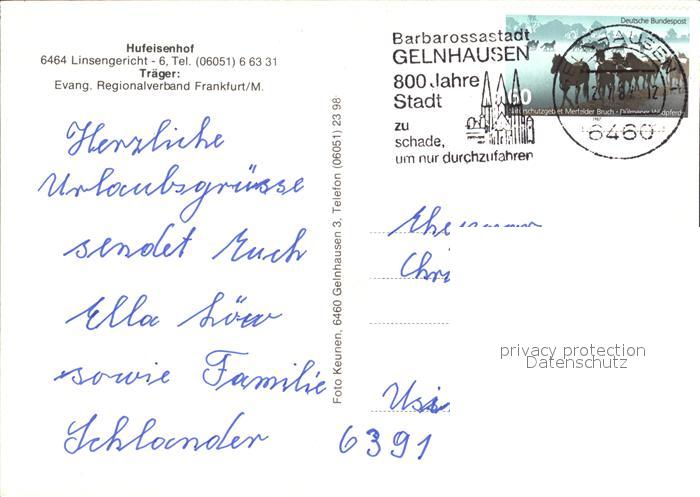 Hufeisenhof
6464 Linsengericht - 6, Tel. (06051) 6 63 31
Träger:
Evang. Regionalverband Frankfurt/M.
Herzliche
Urlaubsgrüsse
sendet Euch
Ella Löw
sowie Familie
Schlander
Foto Keunen, 6460 Gelnhausen 3, Telefon (06051) 23 98
Barbarossastadt
GELNHAUSEN
800 Jahre
Stadt
zu
schade,
um nur durchzufahren
Deutsche Bundespost
60
Naturschutzgebiet Merfelder Bruch · Dülmener Wildpferde
GELNHAUSEN
6460
Chri
privacy protection
Datenschutz
Usi
6391